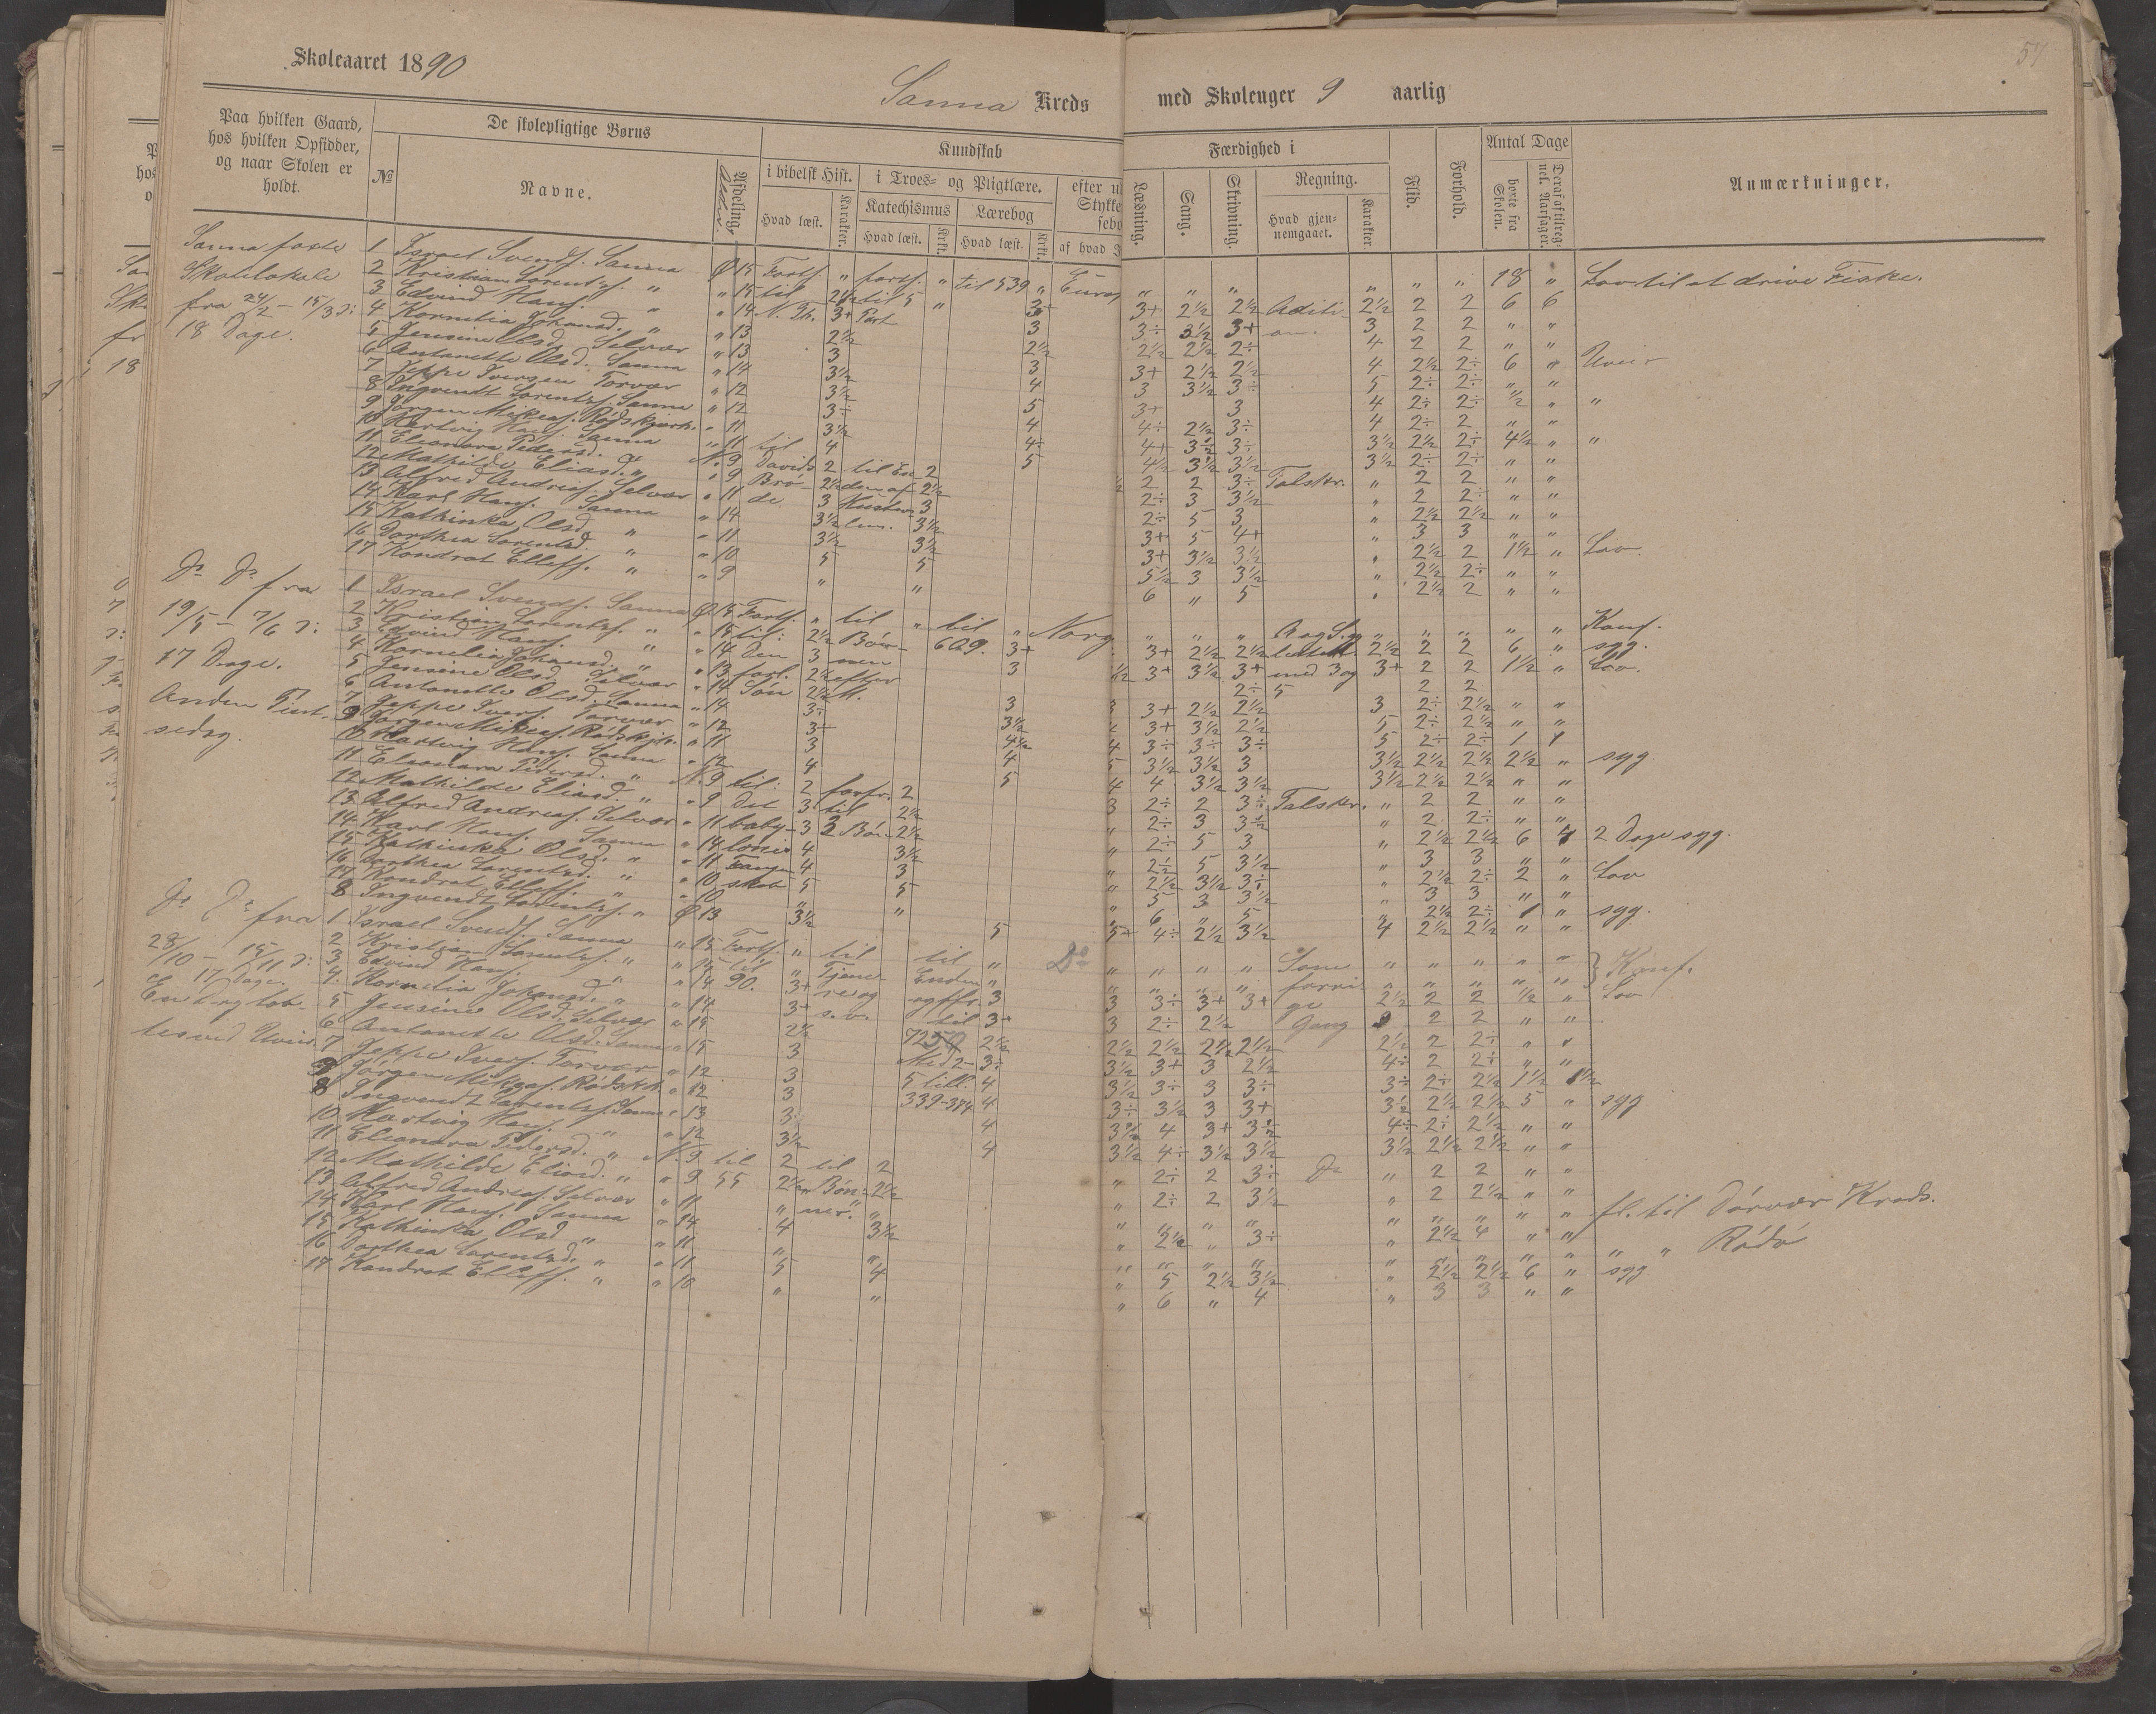 Skoleaaret 1890
Sanna Kreds med Skoleuger 9 aarlig
57
Paa hvilken Gaard, hos hvilken Opsidder, og naar Skolen er holdt.
De skolepligtige Børns
№
Navne.
Afdeling.
Alder.
Kundskab
i bibelsk Hist.
Hvad læst.
Karakter.
i Troes- og Pligtlære.
Katechismus
Hvad læst.
Krkt.
Lærebog
Hvad læst.
Krkt.
efter
Stykke
af hvad
Færdighed i
Læsning.
Sang.
Skrivning.
Regning.
Hvad gjennemgaaet.
Karakter.
Flid.
Forhold.
Antal Dage
borte fra Skolen.
Deraf af tilregnel. Aarsager.
Anmærkninger.
Sanna faste
Skolelokale
fra 24/2 - 15/3 d:
18 Dage.
1 Israel Svends. Sanna Ø 15 Forts. " forts. " til 539 " Europ " " " " " " 18 " Lov til at drive Fiske.
2 Kristian Lorents. " " 15 til 2½ til 5 " 3+ 3+ 2½ 2½ Aditi- 2½ 2 2 6 6
3 Edvind Hans. " " 14 N. Th. 3+ Part 3 3÷ 3½ 3+ on. 3 2 2 " "
4 Kornelia Johansd. " " 13 2½ 2½ 2½ 2½ 2÷ 4 2 2 " "
5 Jensine Olsd. Selvær " 13 3 3 3+ 2½ 2½ 4 2½ 2÷ 6 " Uveir
6 Antonette Olsd. Sanna " 14 3½ 4 3 3½ 3÷ 5 2÷ 2÷ " "
7 Jeppe Iversen Torvær " 12 3½ 5 3+ 3 4 2÷ 2÷ ½ " "
8 Ingvardt Lorents. Sanna " 12 3÷ 4 4÷ 2½ 3÷ 4 2÷ 2 " "
9 Jørgen Mikeas. Rødskjærh. " 11 3½ 4÷ 4+ 3½ 3÷ 3½ 2½ 2÷ 4½ " "
10 Hartvig Hans. Sanna " 11 til 4 5 4½ 3½ 3½ 3½ 2÷ 2÷ " "
11 Eleonora Pedersd. " N. 9 Davids 2 til En- 2 2 2 3÷ Talskr. " 2 2 " "
12 Mathilde Eliasd. " " 9 Brø- 2½ den af 2½ 2÷ 3 3½ " 2 2÷ " "
13 Alfred Andreas. Selvær " 11 de 3 Hustav- 3 2÷ 5 3 " 2½ 2½ " "
14 Karl Hans. Sanna " 14 3½ len. 3½ 3+ 5 4+ " 3 3 " "
15 Kathinka Olsd. " " 11 3½ 3½ 3+ 3½ 3½ " 2½ 2 1½ " Lov.
16 Dorthea Lorentsd. " " 10 5 5 5½ 3 3½ " 2½ 2÷ " "
17 Kondrat Elleff. " " 9 " " 6 " 5 " 2½ 2 " "
Do Do fra
19/5 - 7/6 d:
17 Dage.
Anden Pint-
sedag.
1 Israel Svends. Sanna Ø 15 Forts. " til " til " Norg. " " " A og S. " " " " " Konf.
2 Kristian Lorents. " " 15 til: 2½ Bøn- 609. 3+ 3+ 2½ 2½ 2½ 2 2 6 " syg.
3 Edvind Hans. " " 14 den 3 nen 3 3+ 3½ 3+ med 3 og 3+ 2 2 1½ " Lov.
4 Kornelia Johansd. " " 13 forl. 2½ efter 2÷ 5 2 2
5 Jensine Olsd. Selvær " 14 Søn 2½ M. 3 3+ 2½ 2½ 3 2÷ 2½ " "
6 Antonette Olsd. Sanna " 14 3÷ 3½ 3+ 3½ 2½ 5 2÷ 2½ " "
7 Jeppe Ivers. Torvær " 12 3÷ 4½ 3÷ 3÷ 3÷ 5 2÷ 2÷ 1 1
9 Jørgen Mikeas. Rødskjær. " 11 3 4 3½ 3½ 3 3½ 2½ 2½ 2½ " syg.
10 Hartvig Hans. Sanna " 12 4 5 4 3½ 3½ 3½ 2½ 2½ " "
11 Eleonora Pedersd. " N. 9 til: 2 forfr. 2 2÷ 2 3÷ Talskr. " 2 2 " "
12 Mathilde Eliasd. " " 9 det 3 til 2½ 2÷ 3 3½ " 2 2÷ " "
13 Alfred Andreas. Selvær " 11 baby- 3 2 Bøn- 2½ 2÷ 5 3 " 2½ 2½ 6 4 2 Dage syg.
14 Karl Hans. Sanna " 14 lonis 4 3½ 2½ 5 3½ " 3 3 " "
15 Kathinka Olsd. " " 11 Fangen 4 3 2½ 3½ 3÷ " 2½ 2÷ 2 " Lov
16 Dorthea Lorentsd. " " 10 skab 5 5 5 3 3½ " 3 3 " "
17 Kondrat Elleff. " " 10 " " 6 " 5 " 2½ 2÷ 1 " syg.
8 Ingvardt Lorents. " Ø 13 3½ 5 5+ 4÷ 2½ 3½ 4 2½ 2½ " "
Do Do fra
28/10 - 15/11 d:
17 Dage.
En Dag tab-
tes ved Uveir.
1 Israel Svends. Sanna " 15 Forts. " til til " Do " " " " Som " " " " " } Konf.
2 Kristian Lorents. " " 15 til " Tjene- Enden " " " " " forri- " " " " "
3 Edvind Hans. " " 14 90. 3+ re og og ffr. 3 3 3÷ 3+ 3+ ge 2½ 2 2 ½ " Lov
4 Kornelia Johansd. " " 14 3+ s.v. til 3+ 3 2÷ 2½ Gang 3 2 2 " "
5 Jensine Olsd. Selvær " 15 2½ 2½ 2½ 2½ 2½ 2½ 2½ 2 2÷ " "
6 Antonette Olsd. Sanna " 15 3 Med 2- 3÷ 3½ 3+ 3 2½ 4÷ 2 2÷ " "
7 Jeppe Ivers. Torvær " 12 3 5 till. 4 3½ 3÷ 3 3÷ 3÷ 2÷ 2½ 1½ 1½
9 Jørgen Mikeas. Rødskh. " 12 3 339-374 4 3÷ 3½ 3 3+ 3½ 2½ 2½ 5 " syg
8 Ingvardt Lorents. Sanna " 13 3÷ 4 3½ 4 3+ 3½ 4÷ 2÷ 2½ " "
10 Hartvig Hans. " " 12 3½ 4 3½ 4÷ 3½ 3½ 3½ 2½ 2½ " "
11 Eleonora Pedersd. " N. 9 til 2 til 2 " 2÷ 2 3÷ Do " 2 2 " "
12 Mathilde Eliasd. " " 9 55 2½ Bøn- 2½ " 2÷ 2 3½ " 2 2½ " "
13 Alfred Andreas. Selvær " 11 " ner. " " " " " " " " " " fl. til Dørvær Kreds.
14 Karl Hans. Sanna " 14 4 3½ " 3½ " 3÷ " 2½ 4 " "
15 Kathinka Olsd " " 11 " " " " " " " " " " " " " Rødø
16 Dorthea Lorentsd. " " 11 5 4 " 5 2½ 3½ " 2½ 2½ 6 " syg
17 Kondrat Elleff. " " 10 " " " 6 " 4 " 3 3 " "